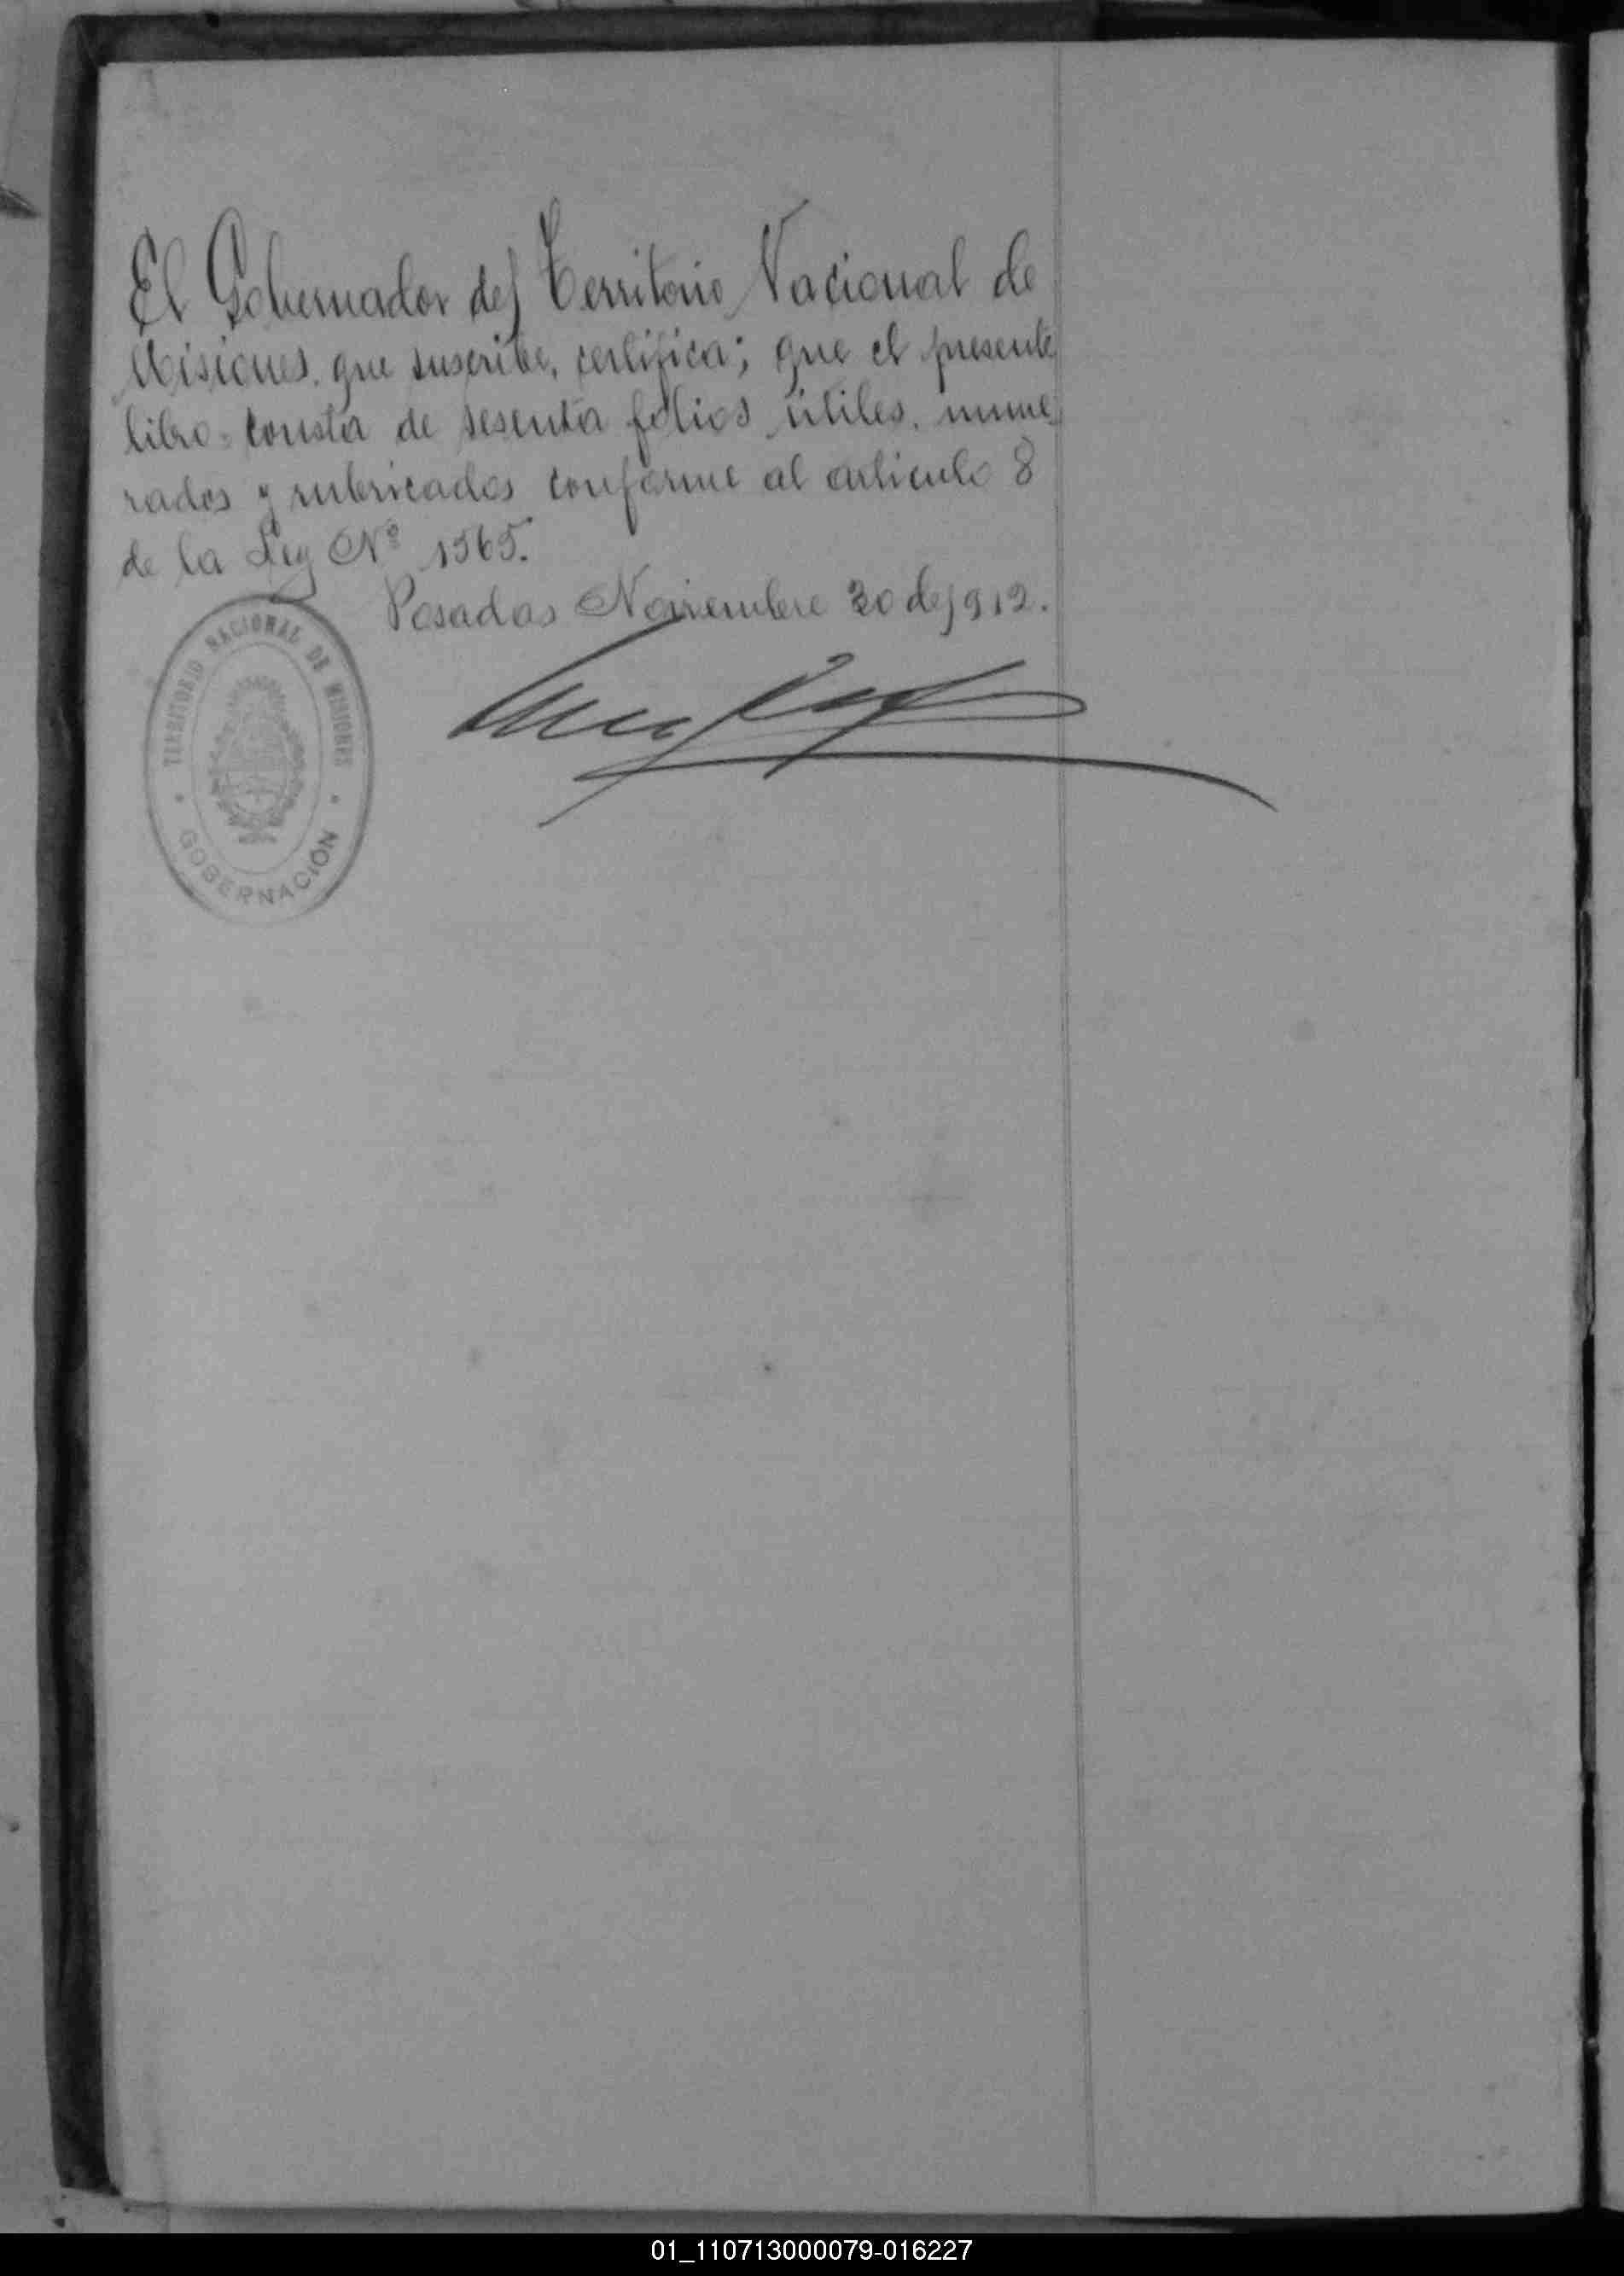 El Gobernador del Territorio Nacional de
Misiones, que suscribe, certifica; que el presente
libro consta de sesenta folios útiles, nume
rados y rubricados conforme al articulo 8
de la Ley Nº 1565.
Posadas Noviembre 30 de 1912.
TERRITORIO NACIONAL DE MISIONES
GOBERNACIÓN
01_110713000079-016227